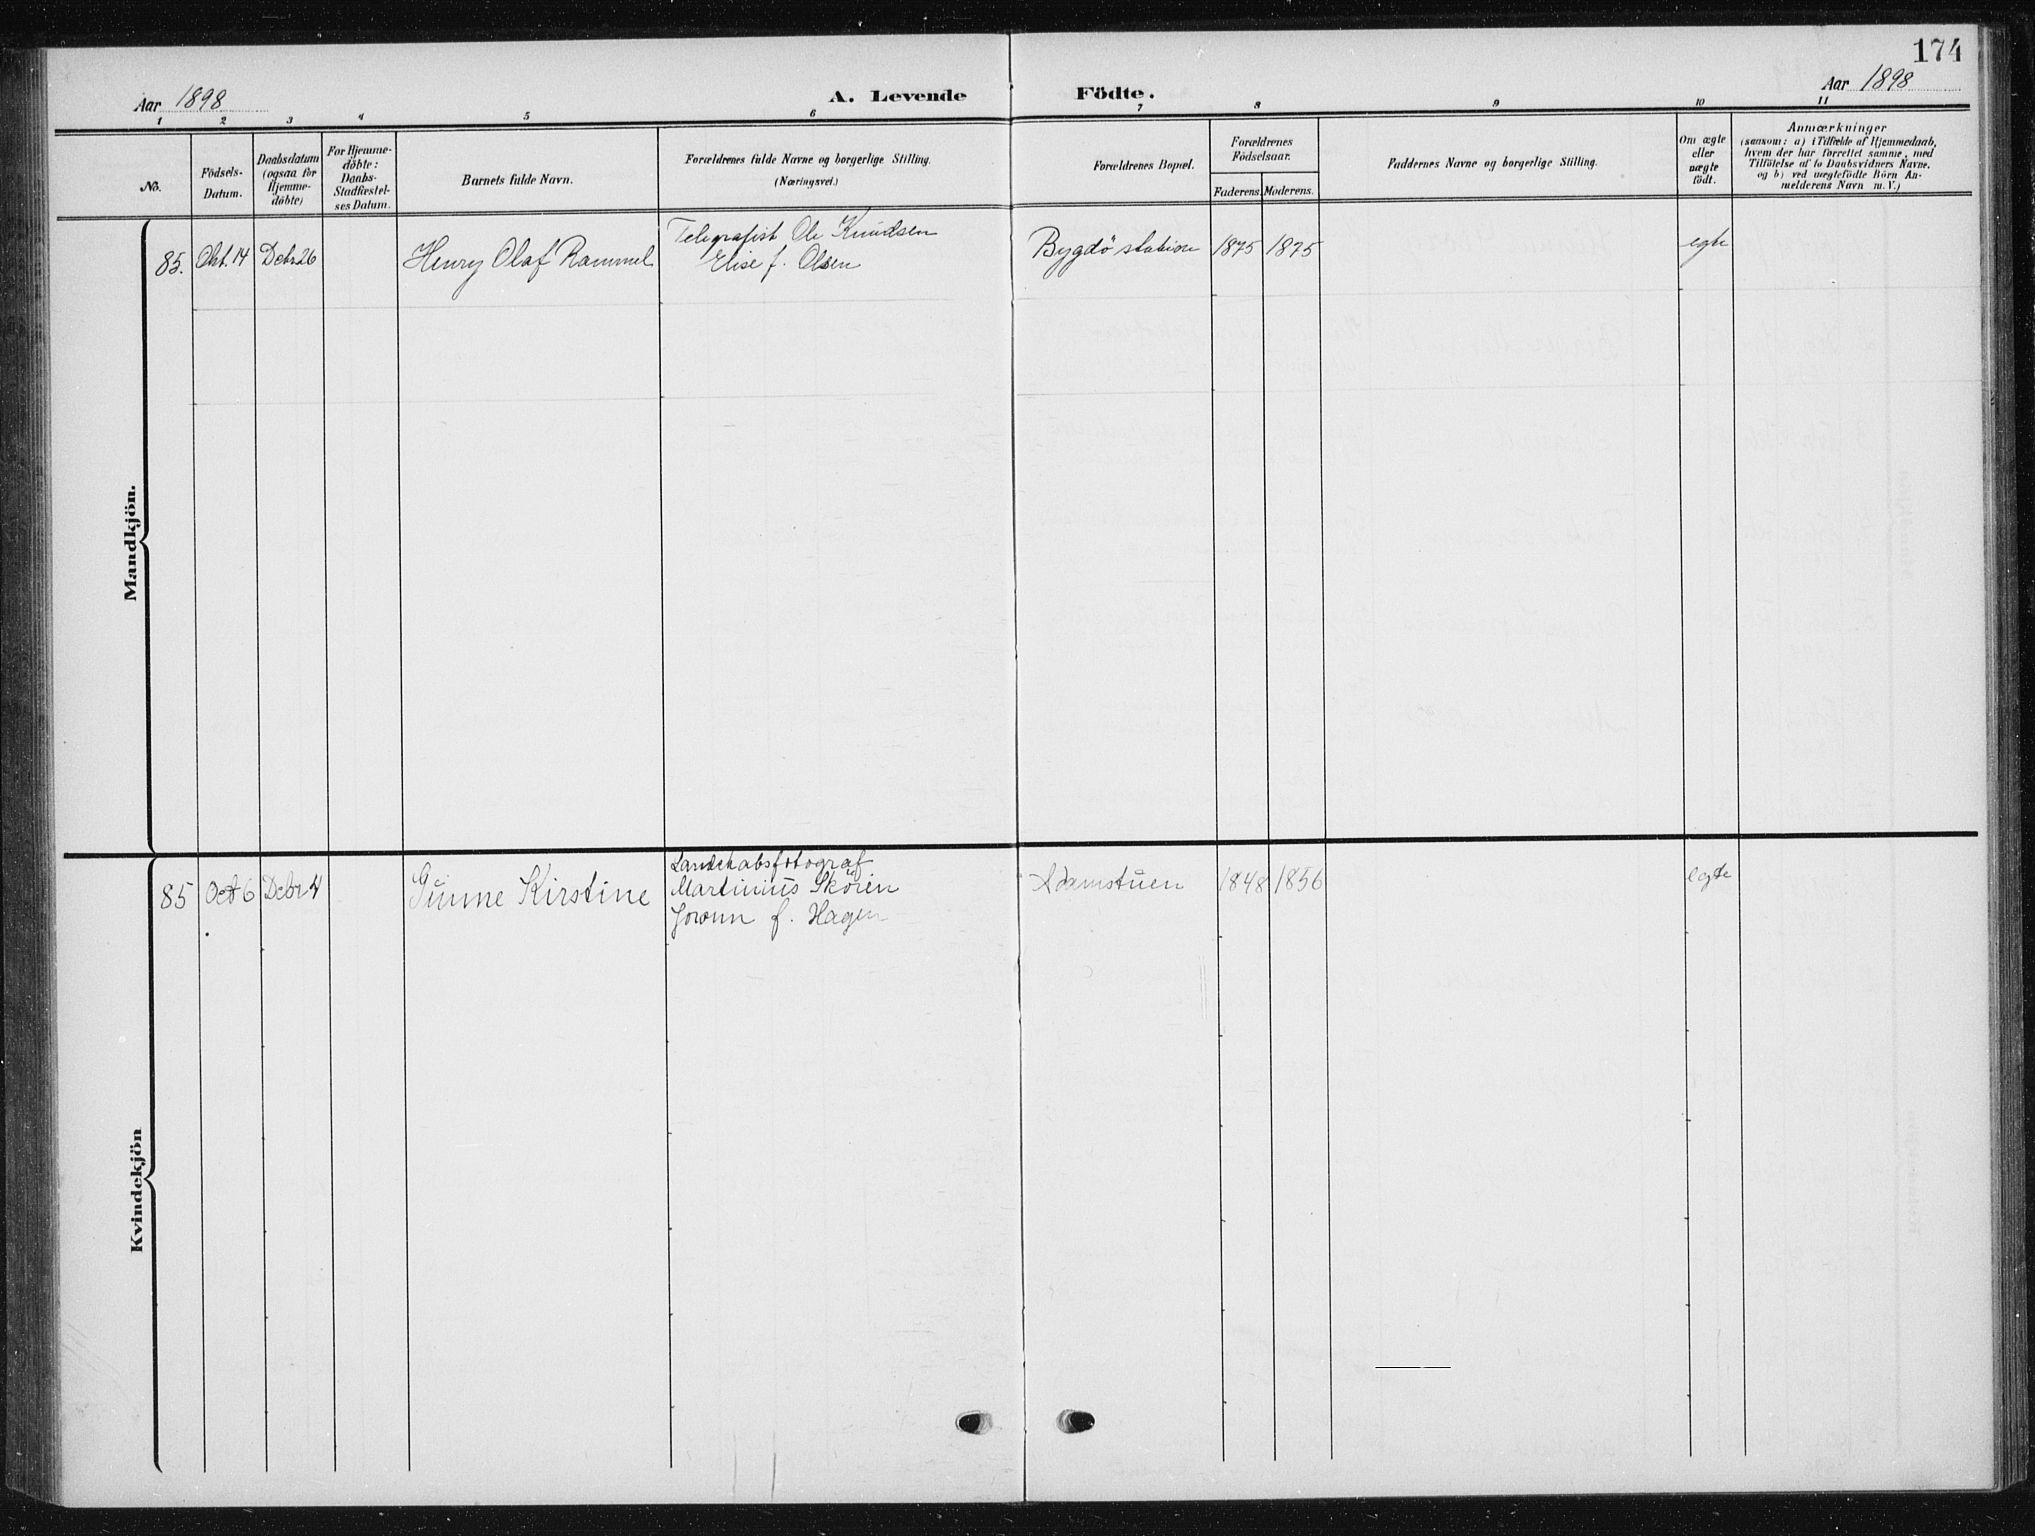 174
Aar 1898
A. Levende Födte.
Aar 1898
1 2 3 4 5 6 7 8 9 10 11
No.
Födsels-
Datum.
Daabsdatum
(ogsaa for
Hjemme-
döbte)
For Hjemme-
döbte:
Daabs-
Stadfæstel-
ses Datum.
Barnets fulde Navn.
Forældrenes fulde Navne og borgerlige Stilling.
(Næringsvei.)
Forældrenes Bopæl.
Forældrenes
Födselsaar.
Faderens. Moderens.
Faddernes Navne og borgerlige Stilling.
Om ægte
eller
uægte
födt.
Anmærkninger
(saasom: a) i Tilfælde af Hjemmedaab,
hvem der har forrettet samme, med
Tilföielse af to Daabsvidners Navne.
og b) ved uægtefödte Börn An-
melderens Navn m. V.)
Mandkjön.
85. Okt. 14 Debr 26 Henry Olaf Rammel
Telegrafist Ole Knudsen
Elise f. Olsen
Bygdö station 1875 1875 egte
Kvindekjön
85 Oct 6 Debr 4 Gunne Kirstine
Landskabsfotograf
Martinius Skøien
Jorunn f. Hagen
Adamstuen 1848 1856 egte